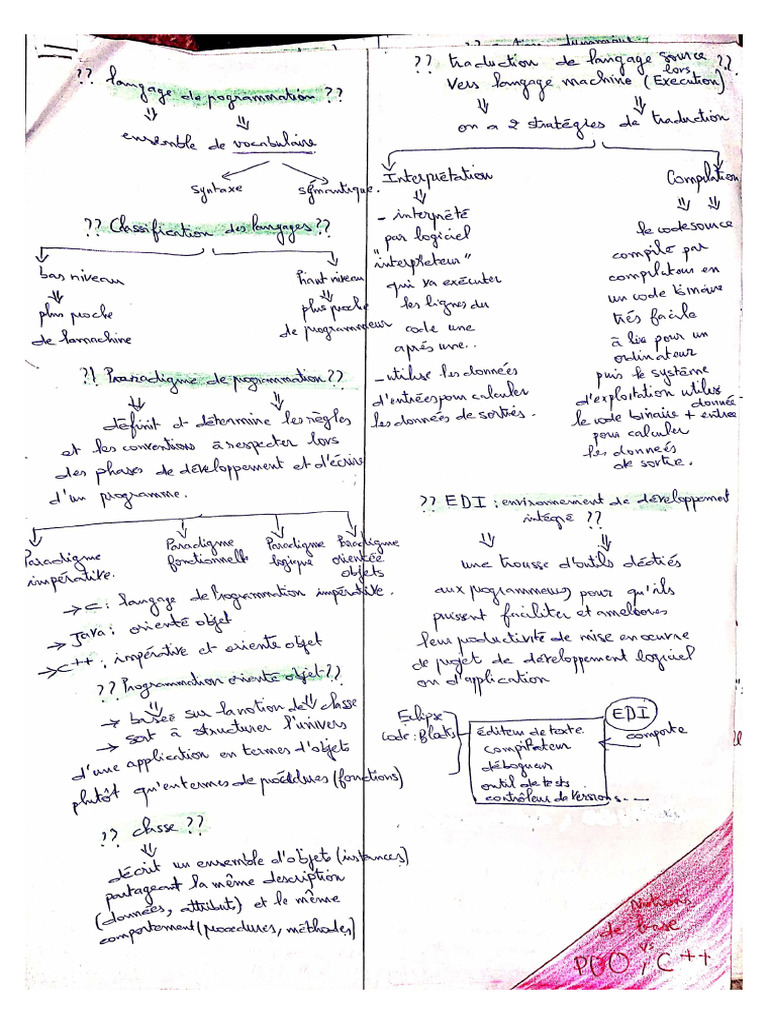 ?? langage de pogrammation ??
ensemble de vocabulaire
syntaxe sémantique.
?? Classification des langages ??
bas niveau haut niveau
plus poche plus poche
de lamachine de programmeur
?? Paradigme de pogrammation ??
définit et détermine les règles
et les conventions à respecter lors
des phases de développement et d'écrire
d'un programme.
Paradigme impérative.
Paradigme fonctionnelle
Paradigme logique
Paradigme orientée objets
→ C : langage de Programmation impérative.
→ Java : orienté objet
→ C++ : impérative et oriente objet
?? Programmation oriente objet ??
→ basée sur la notion de classe
→ sert à structurer l'univers
d'une application en termes d'objets
plutôt qu'en termes de pocédures (fonctions)
?? classe ??
décrit un ensemble d'objets (instances)
partageant la même description
(données, attributs) et le même
comportement (procedures, méthodes)
?? traduction de langage source ??
vers langage machine (lors Execution)
on a 2 stratégies de traduction
Interprétation
- interprété
par logiciel
"interpreteur"
qui va exécuter
les lignes du
code une
après une..
- utilise les données
d'entrées pour calculer
les données de sortiés.
Compilation
le code source
compile par
compilateur en
un code binaire
trés facile
à lire pour un
ordinateur
puis le système
d'exploitation utilise
le code binaire + donnée entrée
pour calculer
les données
de sortie.
?? EDI : environnement de développement
intégré ??
une trousse d'outils dédiés
aux pogrammeurs pour qu'ils
puissent faciliter et ameliorer
leur productivité de mise en œuvre
de projet de développement logiciel
ou d'application
Eclipse
code : Blocks
EDI
comporte
éditeur de texte.
compilateur
débogueur
outil de tests
contrôleur de versions ---
Notions
de base
POO C++